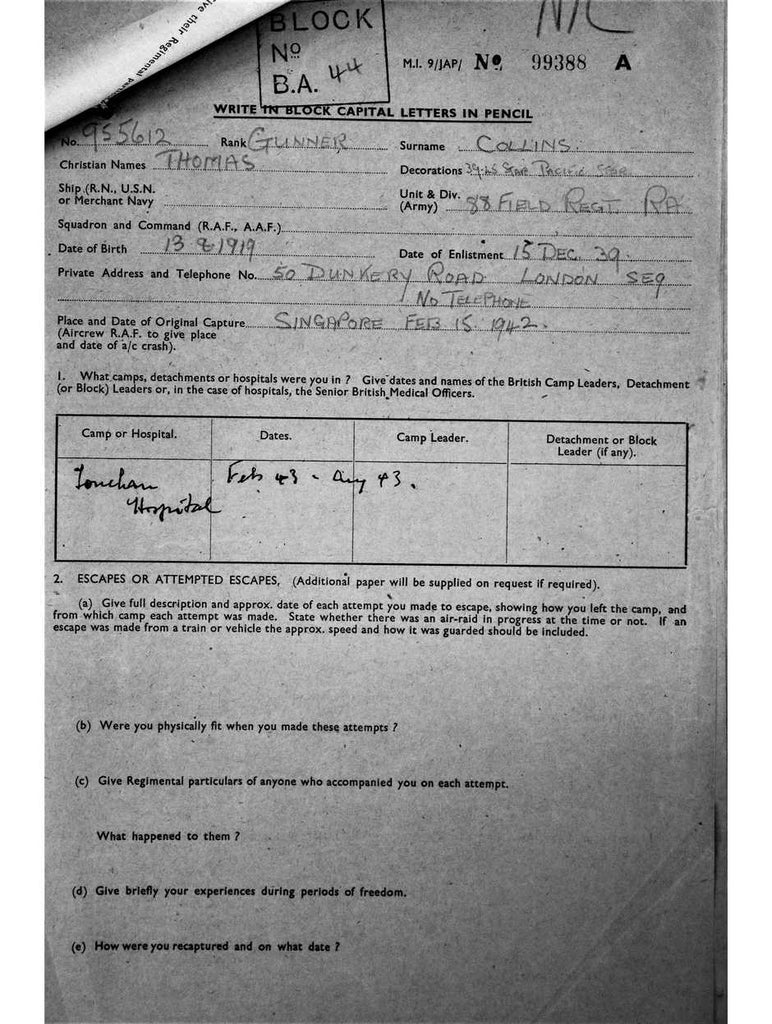 ive their Regimental
BLOCK
No
B.A. 44
M.I. 9/JAP/ No. 99388 A
WRITE IN BLOCK CAPITAL LETTERS IN PENCIL
No. 955612 Rank GUNNER Surname COLLINS.
Christian Names THOMAS Decorations 39-45 Star Pacific Star
Ship (R.N., U.S.N.
or Merchant Navy
Unit & Div.
(Army) 88 FIELD REGT. RA
Squadron and Command (R.A.F., A.A.F.)
Date of Birth 13 8 1919 Date of Enlistment 15 DEC. 39.
Private Address and Telephone No. 50 DUNKERY ROAD LONDON SE9
NO TELEPHONE
Place and Date of Original Capture SINGAPORE FEB 15. 1942.
(Aircrew R.A.F. to give place
and date of a/c crash).
1. What camps, detachments or hospitals were you in ? Give dates and names of the British Camp Leaders, Detachment
(or Block) Leaders or, in the case of hospitals, the Senior British Medical Officers.
Camp or Hospital. Dates. Camp Leader. Detachment or Block
Leader (if any).
Tonchan Feb 43 - Aug 43.
Hospital
2. ESCAPES OR ATTEMPTED ESCAPES, (Additional paper will be supplied on request if required).
(a) Give full description and approx. date of each attempt you made to escape, showing how you left the camp, and
from which camp each attempt was made. State whether there was an air-raid in progress at the time or not. If an
escape was made from a train or vehicle the approx. speed and how it was guarded should be included.
(b) Were you physically fit when you made these attempts ?
(c) Give Regimental particulars of anyone who accompanied you on each attempt.
What happened to them ?
(d) Give briefly your experiences during periods of freedom.
(e) How were you recaptured and on what date ?